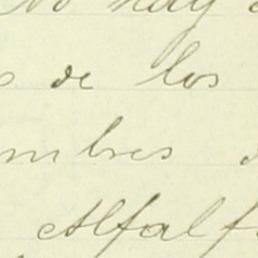 No hay
de los
mbres
Alfalf